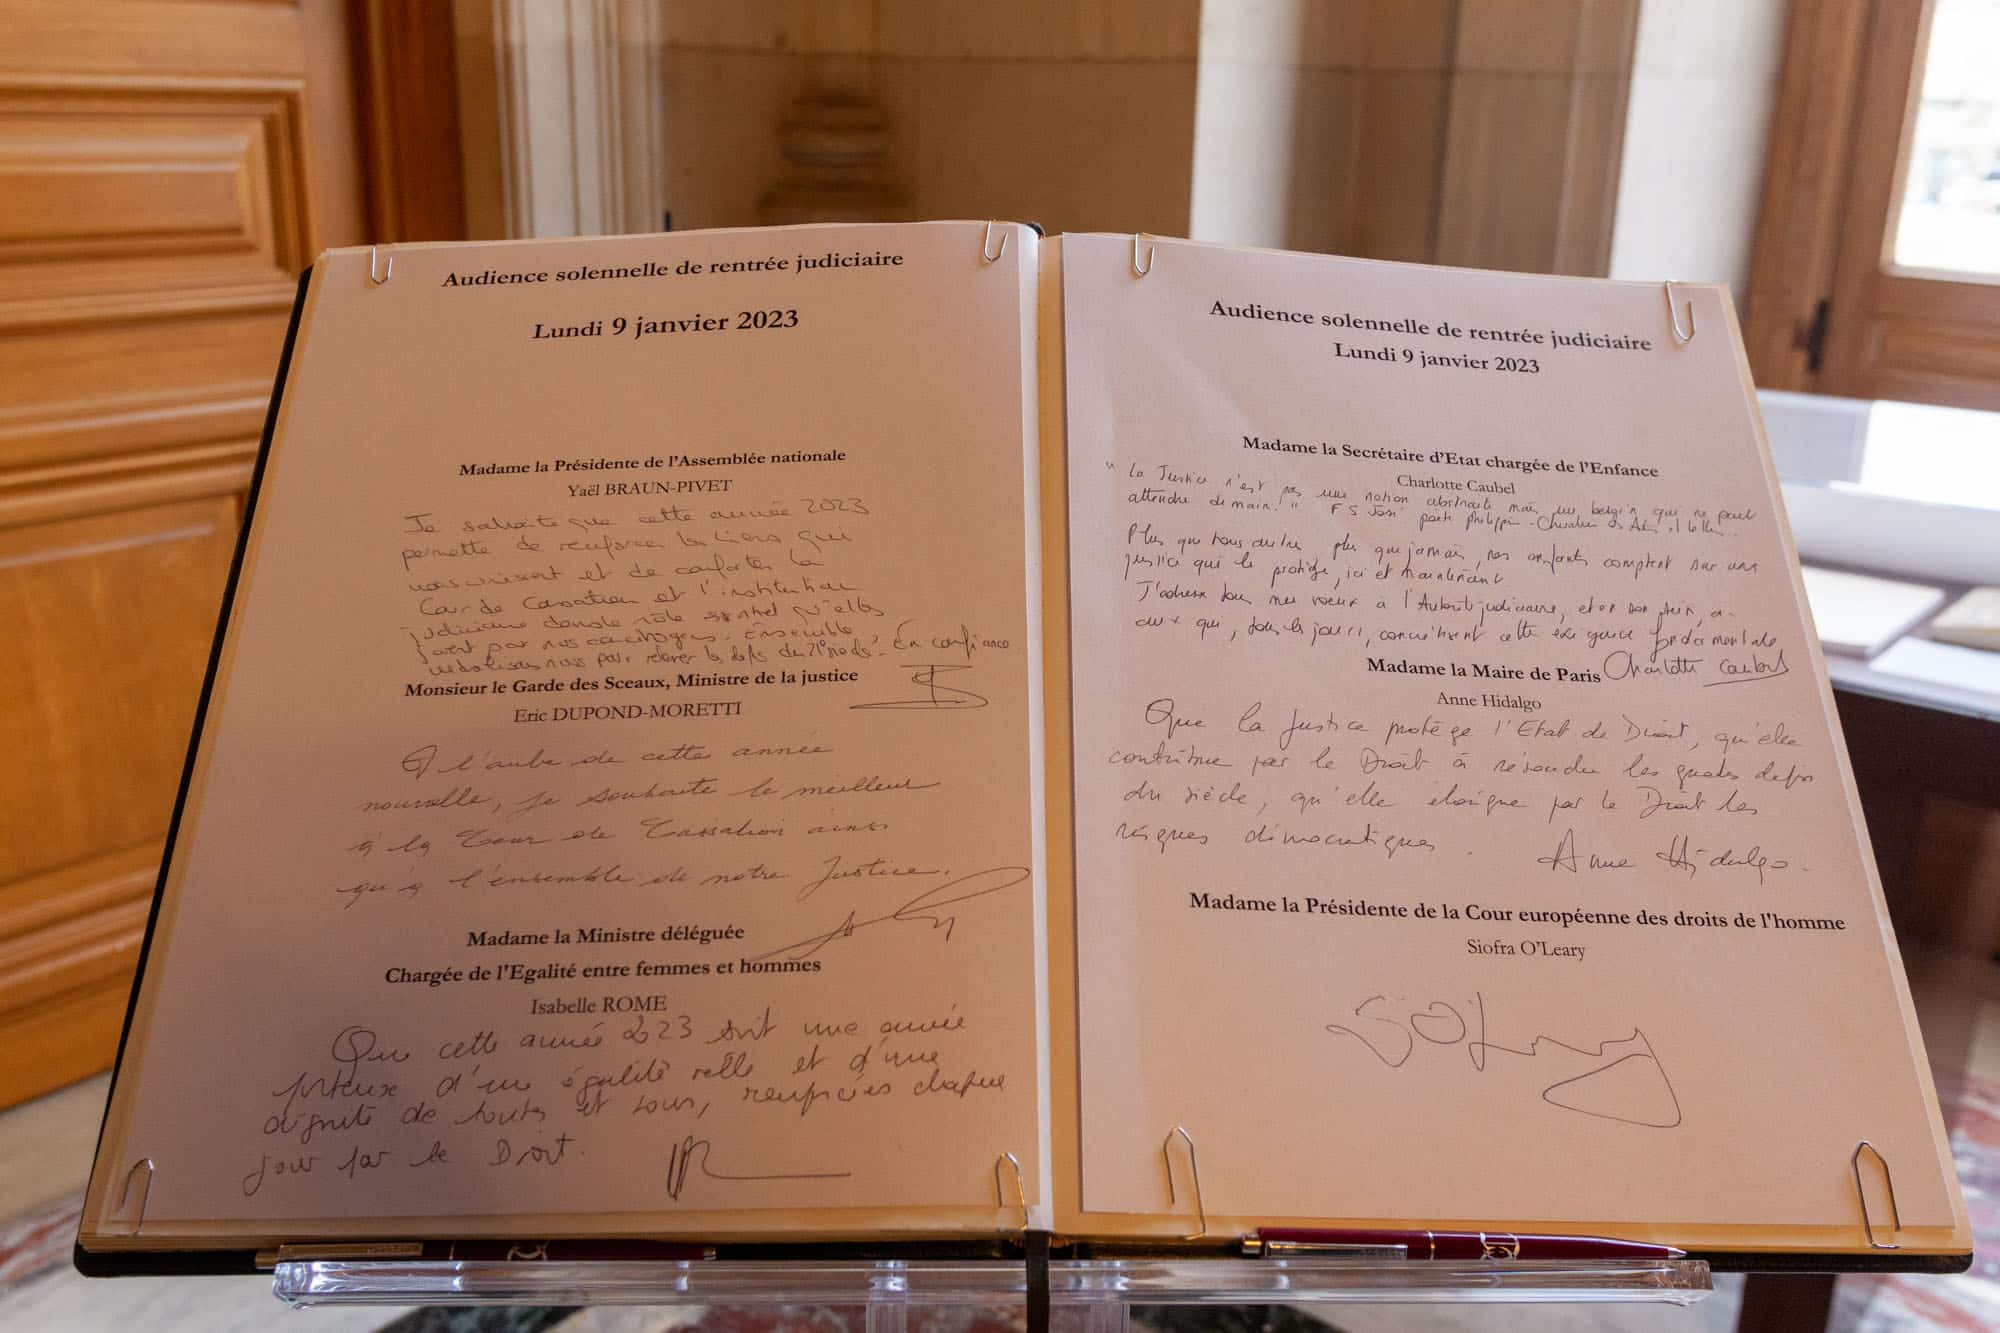 Audience solennelle de rentrée judiciaire
Lundi 9 janvier 2023
Madame la Présidente de l'Assemblée nationale
Yaël BRAUN-PIVET
Je souhaite que cette année 2023
permette de renforcer les liens qui
nous unissent et de conforter la
Cour de Cassation et l'institution
judiciaire dans le rôle essentiel qu'elles
jouent pour nos concitoyens. Ensemble
mobilisons nous pour relever les défis du 21e siècle. En confiance
Monsieur le Garde des Sceaux, Ministre de la justice
Eric DUPOND-MORETTI
A l'aube de cette année
nouvelle, je souhaite le meilleur
à la Cour de Cassation ainsi
qu'à l'ensemble de notre Justice.
Madame la Ministre déléguée
Chargée de l'Egalité entre femmes et hommes
Isabelle ROME
Que cette année 2023 soit une année
porteuse d'une égalité réelle et d'une
dignité de toutes et tous, renforcées chaque
jour par le Droit.
Audience solennelle de rentrée judiciaire
Lundi 9 janvier 2023
Madame la Secrétaire d'Etat chargée de l'Enfance
Charlotte Caubel
"La Justice n'est pas une notion abstraite mais un besoin qui ne peut
attendre demain." F S José poète philippin - Chevalier des Arts et lettres.
Plus que tous autres, plus que jamais, nos enfants comptent sur une
justice qui les protège, ici et maintenant
J'adresse tous mes voeux à l'Autorité judiciaire, et en son sein, à
ceux qui, tous les jours, concrétisent cette exigence fondamentale
Charlotte Caubel
Madame la Maire de Paris
Anne Hidalgo
Que la Justice protège l'Etat de Droit, qu'elle
contribue par le Droit à résoudre les grands défis
du siècle, qu'elle éloigne par le Droit les
risques démocratiques.
Anne Hidalgo.
Madame la Présidente de la Cour européenne des droits de l'homme
Siofra O'Leary